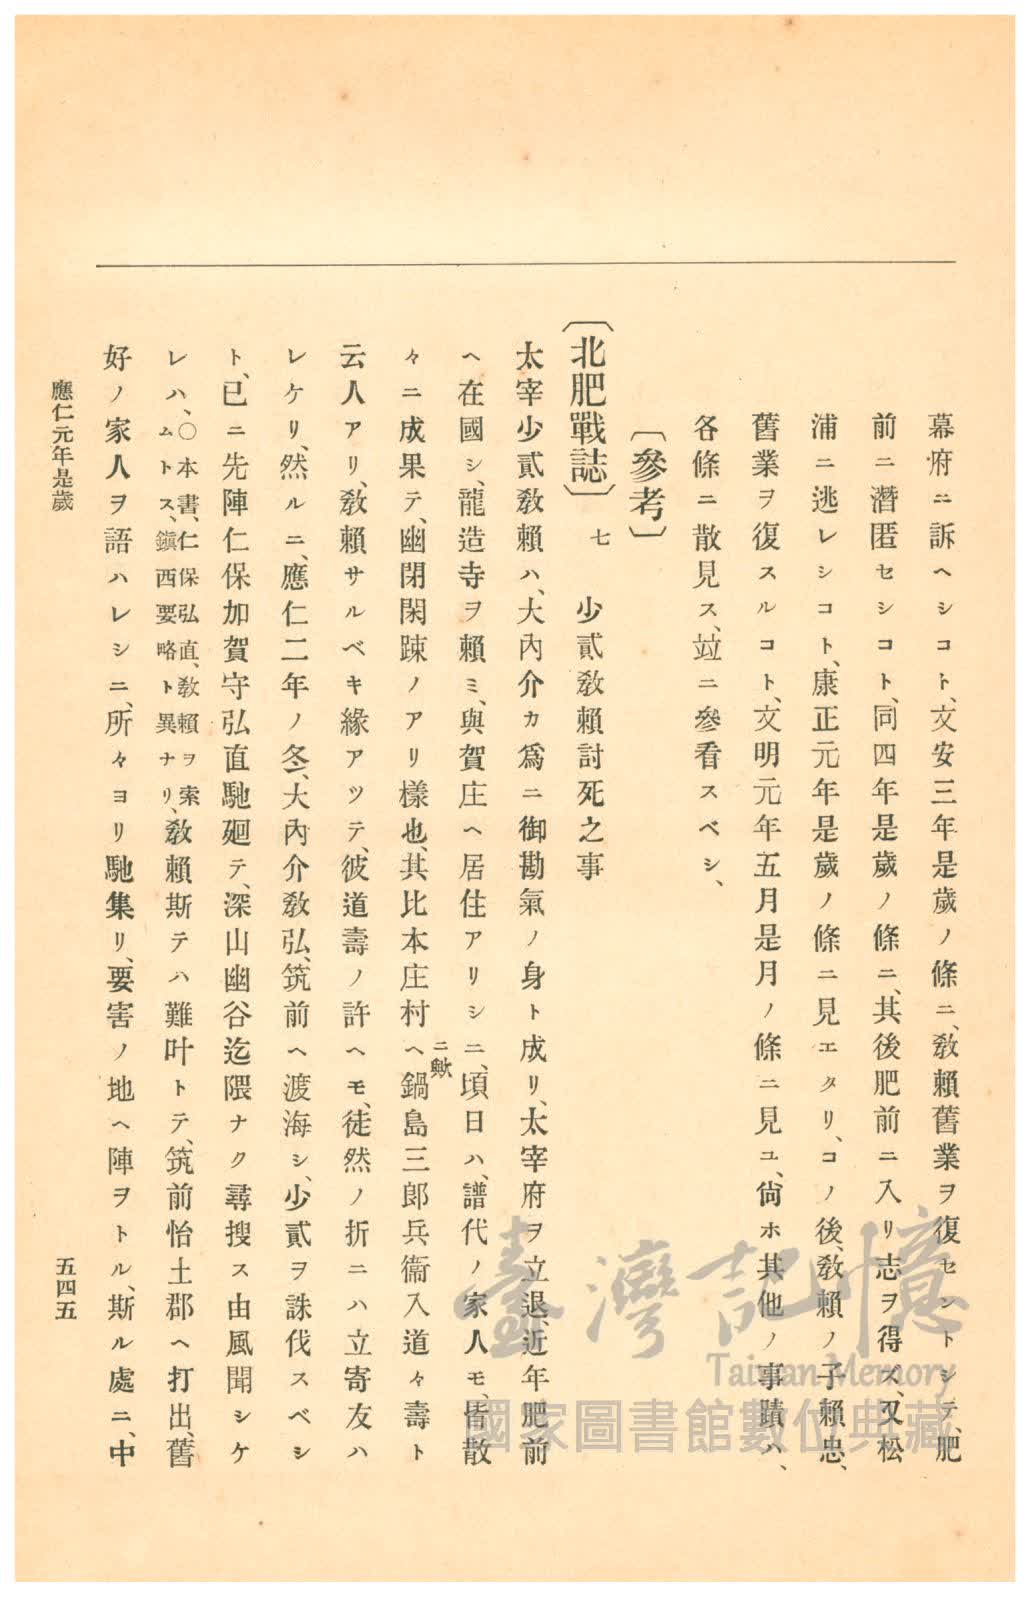 幕府ニ訴ヘシコト、文安三年是歲ノ條ニ、敎賴舊業ヲ復セントシテ、肥
前ニ潛匿セシコト、同四年是歲ノ條ニ、其後肥前ニ入リ志ヲ得ズ、又松
浦ニ逃レシコト、康正元年是歲ノ條ニ見エタリ、コノ後、敎賴ノ子賴忠、
舊業ヲ復スルコト、文明元年五月是月ノ條ニ見ユ、尙ホ其他ノ事蹟ハ、
各條ニ散見ス、竝ニ參看スベシ、
〔參考〕
〔北肥戰誌〕 七 少貳敎賴討死之事
太宰少貳敎賴ハ、大內介カ爲ニ御勘氣ノ身ト成リ、太宰府ヲ立退、近年肥前
ヘ在國シ、龍造寺ヲ賴ミ、與賀庄ヘ居住アリシニ、頃日ハ、譜代ノ家人モ、皆散
々ニ成果テ、幽閉閑踈ノアリ樣也、其比本庄村ヘ鍋島三郎兵衞入道々壽ト
ニ歟
云人アリ、敎賴サルベキ緣アツテ、彼道壽ノ許ヘモ、徒然ノ折ニハ立寄友ハ
レケリ、然ルニ、應仁二年ノ冬、大內介敎弘、筑前ヘ渡海シ、少貳ヲ誅伐スベシ
ト、已ニ先陣仁保加賀守弘直馳廻テ、深山幽谷迄隈ナク尋搜ス由風聞シケ
レハ、〇本書、仁保弘直、敎賴ヲ索ムトス、鎭西要略ト異ナリ、敎賴斯テハ難叶トテ、筑前怡土郡ヘ打出、舊
好ノ家人ヲ語ハレシニ、所々ヨリ馳集リ、要害ノ地ヘ陣ヲトル、斯ル處ニ、中
應仁元年是歲
五四五
臺灣記憶
Taiwan Memory
國家圖書館數位典藏